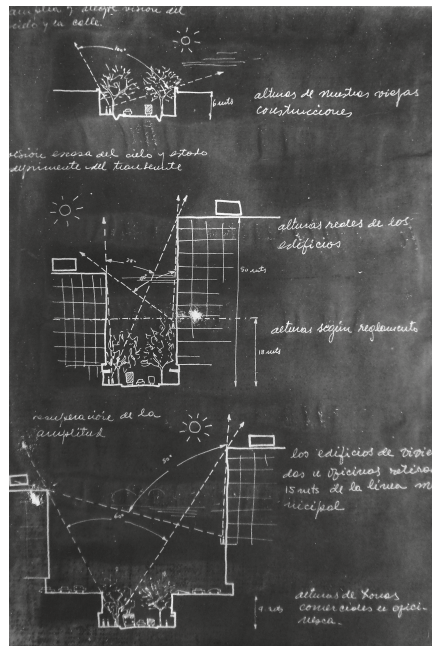 amplia y alegre visión del
cielo y la calle.
100°
6 mts
alturas de nuestras viejas
construcciones
visión escasa del cielo y estado
deprimente del transeunte
alturas reales de los
edificios
20°
50 mts
alturas según reglamento
18 mts
recuperación de la
amplitud
50°
los edificios de vivien
das u oficinas retiros
15 mts de la línea mu
nicipal
60°
9 mts
alturas de zonas
comerciales u ofici-
nesca.